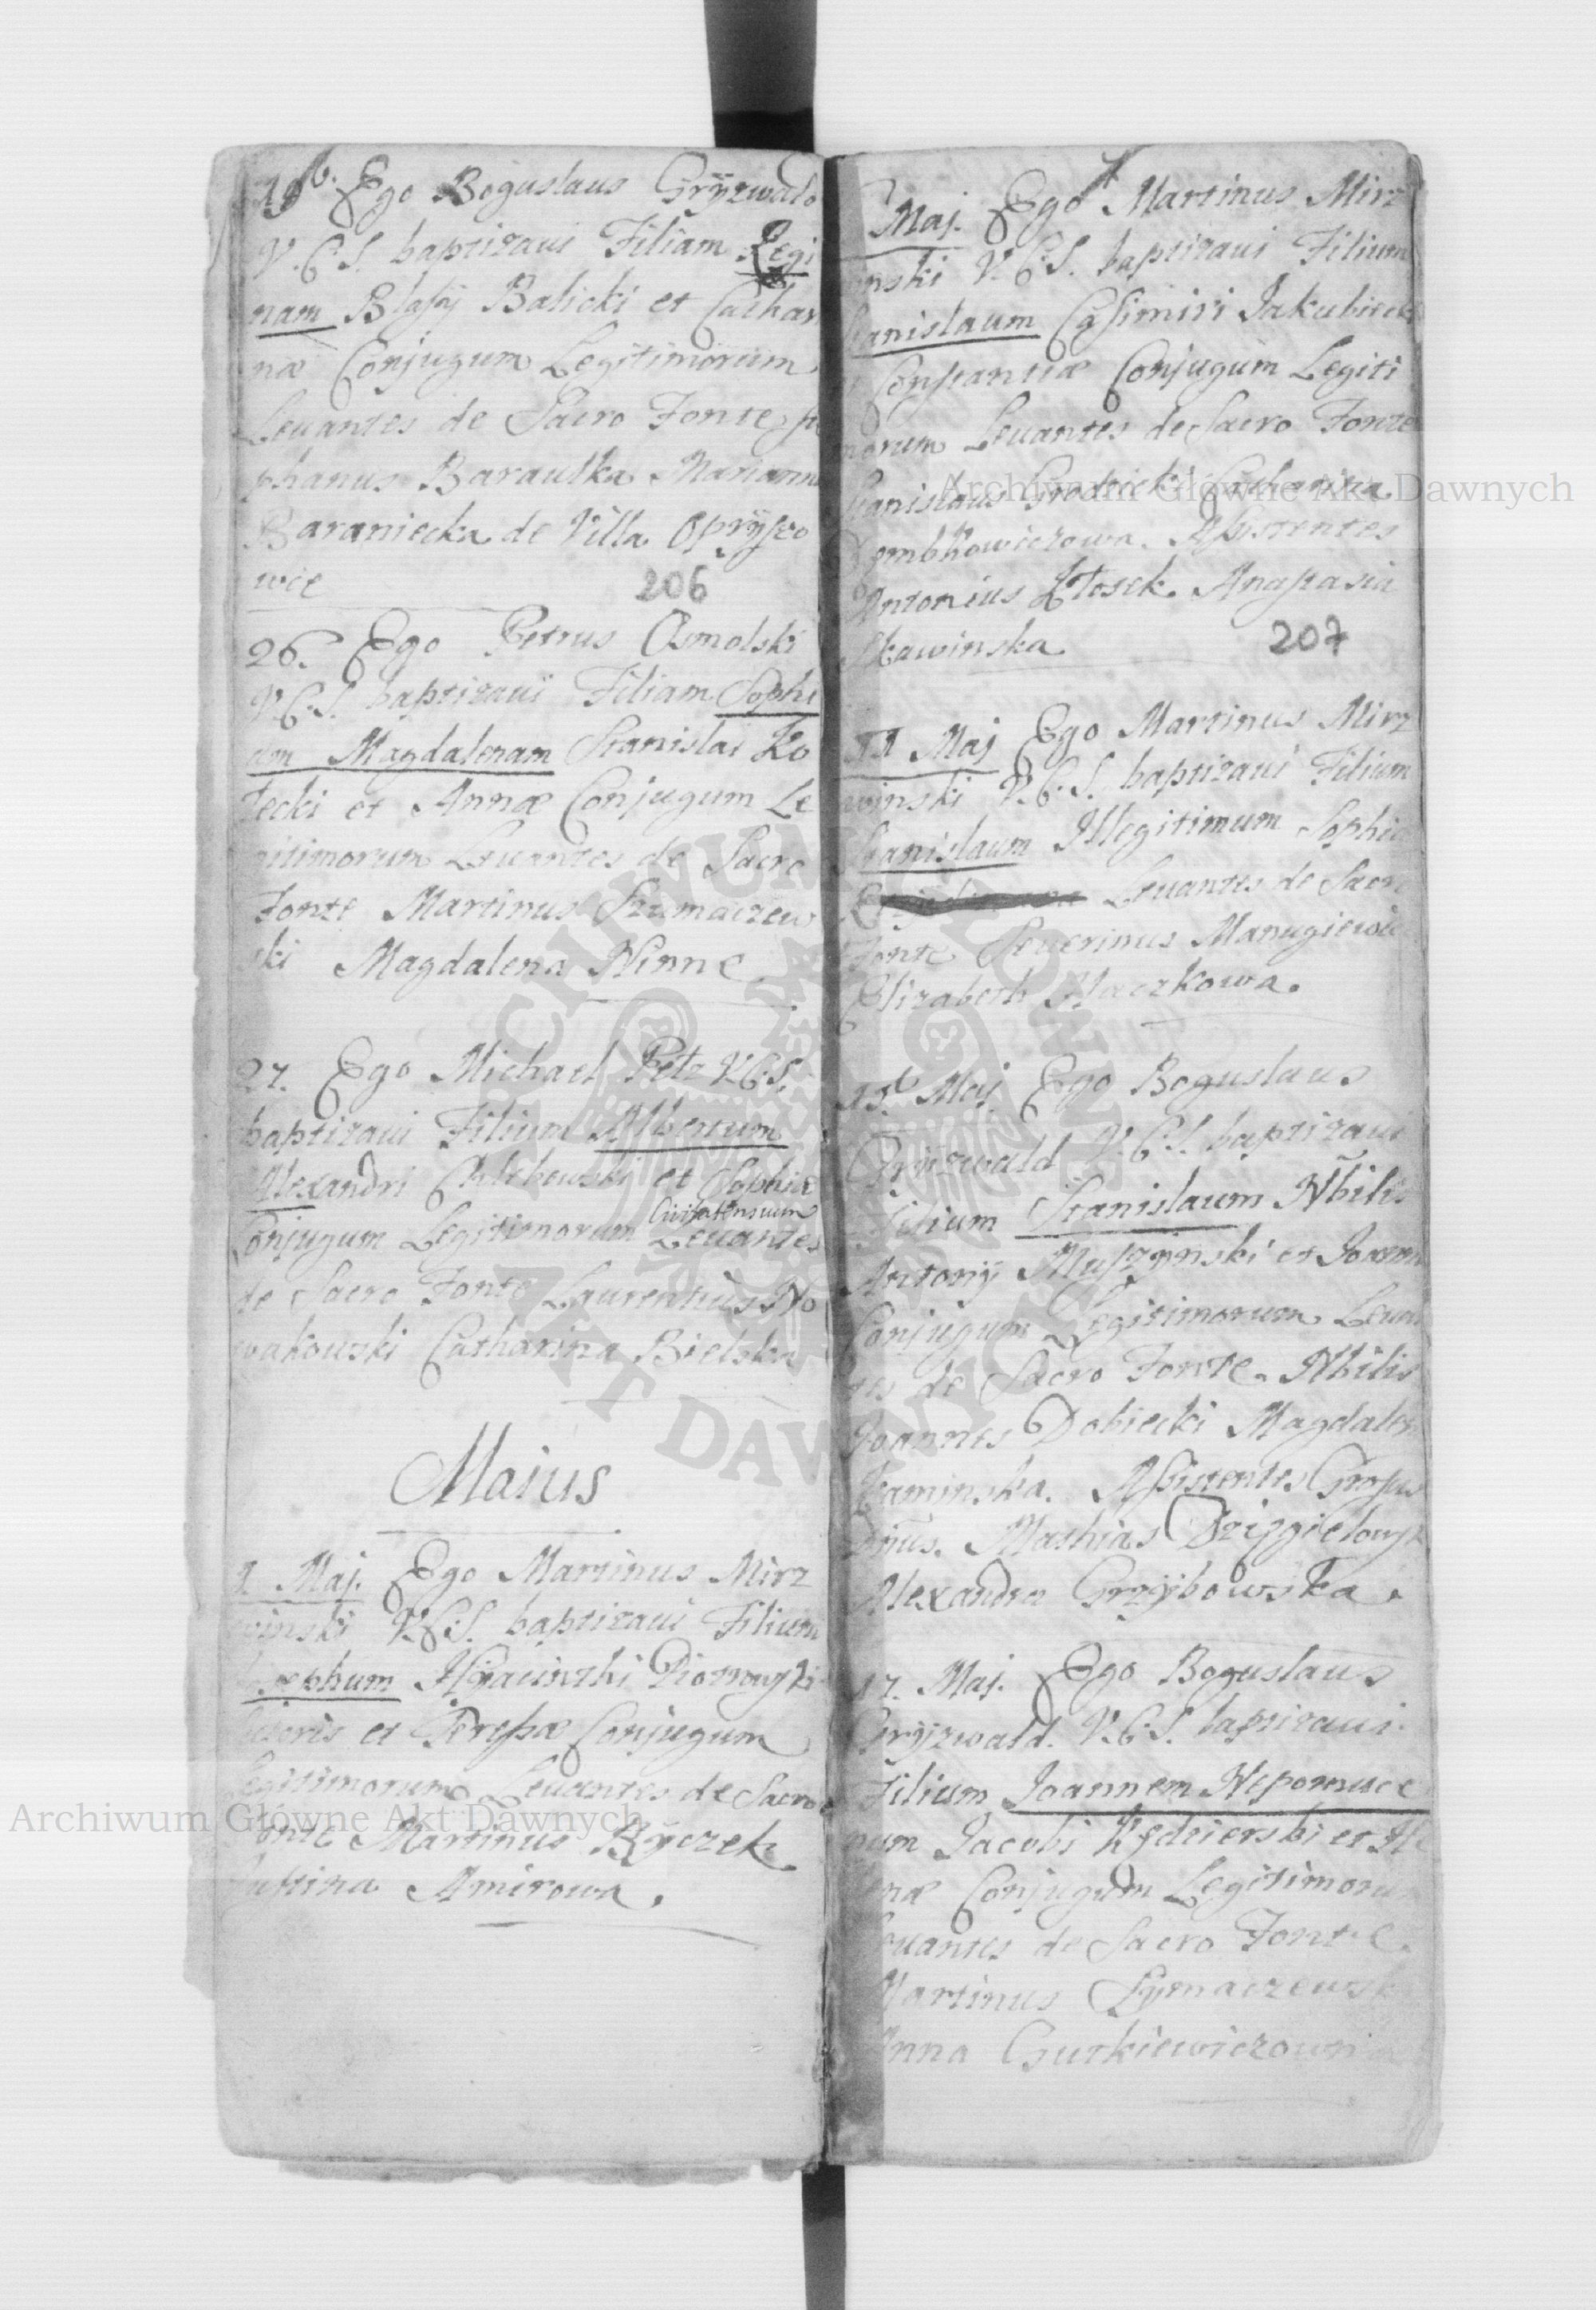 19b. Ego Boguslaus Gryzwald
V.C.S. baptizaui Filiam Regi
nam Blasÿ Balicki et Cathari
næ Conjugum Legitimorum
Leuantes de Sacro Fonte Ste
phanus Baraulka Marianna
Baraniecka de Villa Opryszo
wce 206
26. Ego Petrus Osmolski
V.C.S. baptizaui Filiam Sophi
am Magdalenam Stanislai Zo
tecki et Annæ Conjugum Le
gitimorum Leuantes de Sacro
Fonte Martinus Szumaczew
ski Magdalena Ninne
27. Ego Michael Petz V.C.S.
baptizaui Filium Albertum
Alexandri Chlebowski et Sophiæ
Civitatensium
Conjugum Legitimorum Leuantes
de Sacro Fonte Laurentius No
wakowski Catharina Bielska
Maius
1 Maj. Ego Martinus Mirz
winski V.C.S. baptizaui Filium
Josephum Hyacinthi Piotrowski
et Teressæ Conjugum
Legitimorum Leuantes de Sacro
Fonte Martinus Byczek
Justina Amirowa.
Maj. Ego Martinus Mirz
winski V.C.S. baptizaui Filium
Stanislaum Casimiri Jakubieck
Constantiæ Conjugum Legiti
morum Leuantes de Sacro Fonte
Stanislaus Grodzicki Catharina
Dembkowiczowa. Assistentes
Antonius Kłosek. Anastasia
Skawinska. 207
11 Maj Ego Martinus Mirz
winski V.C.S. baptizaui Filium
Stanislaum Illegitimum Sophiæ
Leuantes de Sacro
Fonte Seuerinus Manugiewic
Elizabeth Haczkowa.
15t Maj Ego Boguslaus
Gryzwald V.C.S. baptizaui
Filium Stanislaum Nbilis
Antonÿ Muszynski et Joanna
Conjugum Legitimorum Leuan
tes de Sacro Fonte. Nbilis
Joannes Dobiecki Magdalen
Kaminska. Assistentes
Dnus. Mathias Dzięgielowsk
Alexandra Grzybowska.
17. Maj. Ego Boguslaus
Gryzwald. V.C.S. baptizaui.
Filium Joannem Nepomuce
num Jacobi Kędzierski et He
næ Conjugum Legitimorum
Leuantes de Sacro Fonte.
Martinus Szymaczewsk
Anna Gurkiewiczowna
Archiwum Główne Akt Dawnych
Archiwum Główne Akt Dawnych
ARCHIWUM GŁÓWNE
AKT DAWNYCH